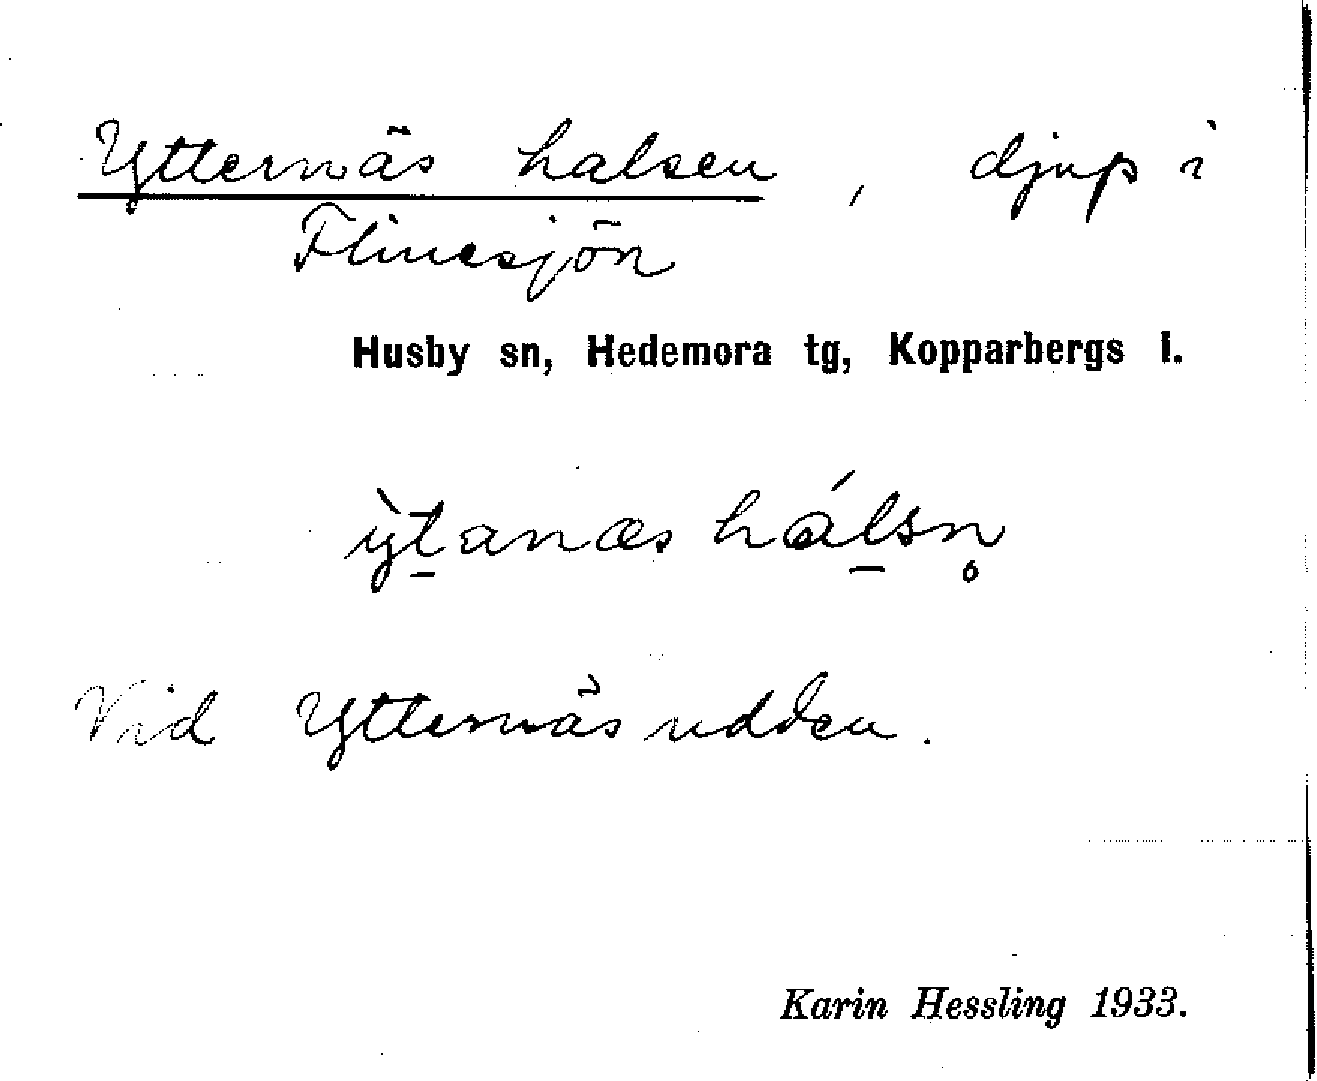 Ytternäs halsen, djup i
Flinesjön
Husby sn, Hedemora tg, Kopparbergs l.
ỳt̠anæs hál̠sn̥
Vid Ytternäsudden.
Karin Hessling 1933.